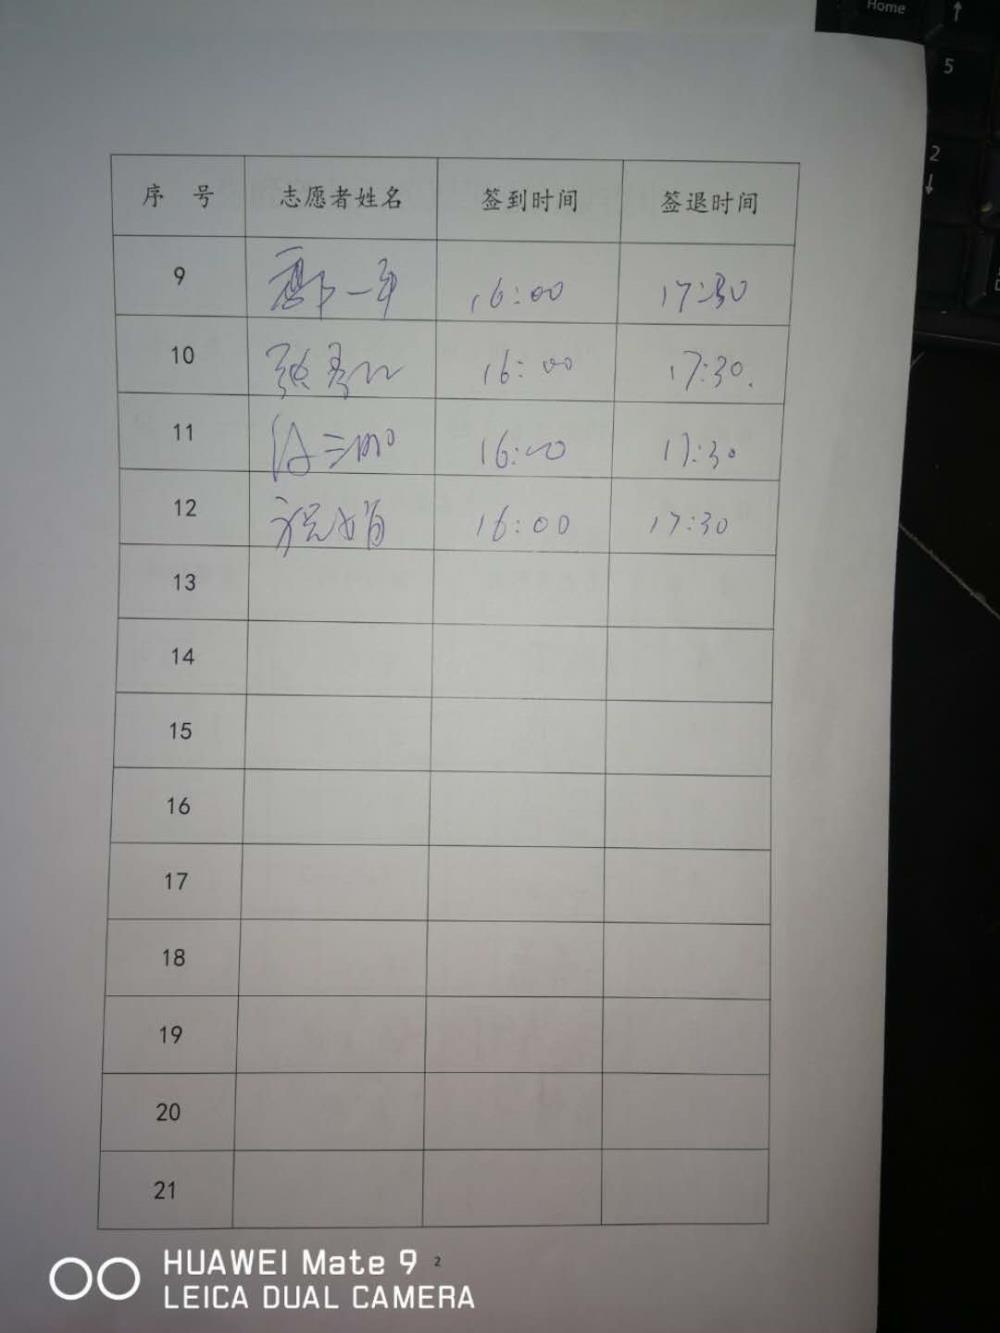 Home ↑
5
2
↓
序 号 志愿者姓名 签到时间 签退时间
9 一 16:00 17:30
10 张 16:00 17:30.
11 16:00 17:30
12 祝娟 16:00 17:30
13
14
15
16
17
18
19
20
21
2
HUAWEI Mate 9
LEICA DUAL CAMERA